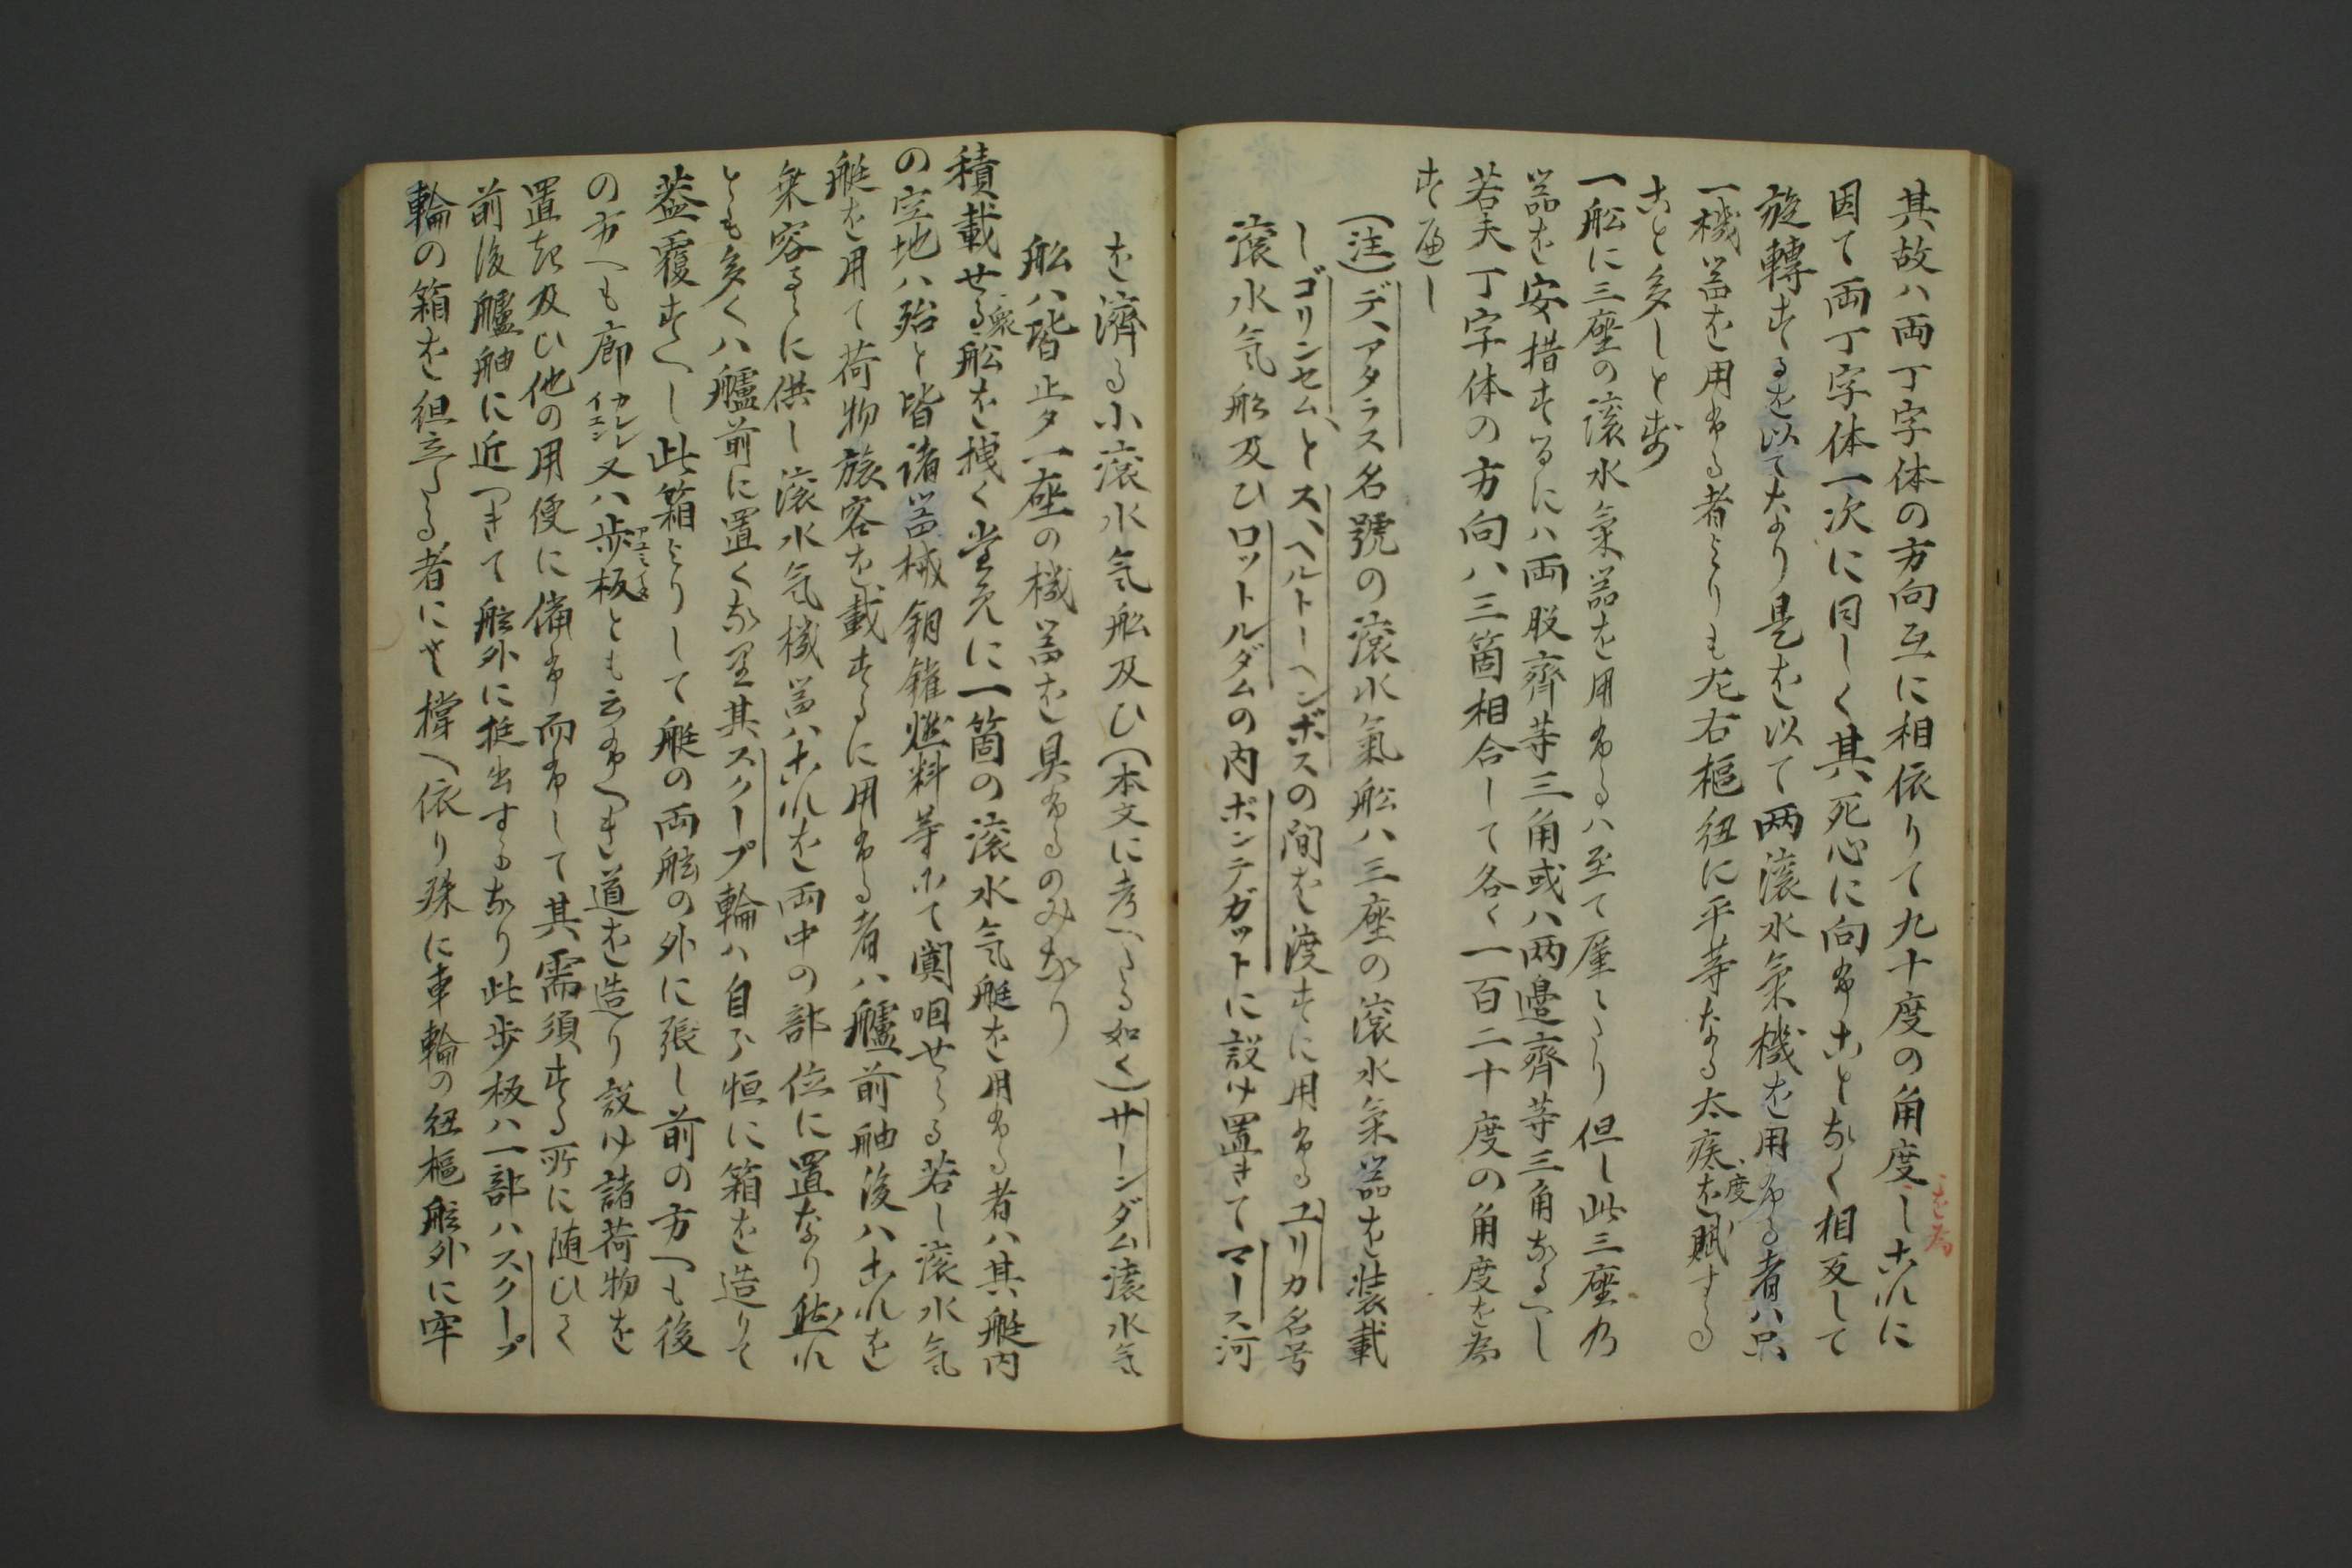 其故ハ両丁字体の方向互に相依りて九十度の角度をし為これに
因て両丁字体一次に同しく其死心に向ふことなく相反して
旋轉するを以てなり是を以て两滚水氣機を用ゆる者ハ只
一機噐を用ゆる者よりも左右樞紐に平等なる太疾度を賦する
こと多しとす
一舩に三座の滚水氣器を用ゆるハ至て厪々たり但し此三座乃
噐を安措するにハ両股齊等三角或ハ两邊齊等三角なるへし
若夫丁字体の方向ハ三箇相合して各く一百二十度の角度を為
すへし
(注)デ、アタラス名號の滚水氣舩ハ三座の滚水氣器を装載
しゴリンセム、とス、ヘルトーヘンボスの間を渡すに用ゆるユリカ名号
滚水気舩及ひロットルダムの内ボンテガットに設け置きてマース河
を濟る小滚水気舩及ひ(本文に考へたる如く)サーンダム滚水気
舩ハ皆止タ一座の機噐を具ゆるのみなり
積載せる衆舩を拽く堂党に一箇の滚水気艇を用ゆる者ハ其艇内
の空地ハ殆と皆諸噐械銅鑵燃料等にて闐咽せらる若し滚水気
艇を用て荷物旅客を載するに用ゆる者ハ艫前舳後ハこれを
乗容るゝに供し滚水気機噐ハこれを両中の部位に置なり然れ
とも多くハ艫前に置くなり其スクープ輪ハ自ら恒に箱を造りて
葢覆すへし此箱よりして艇の両舷の外に張し前の方へも後
の方へも廊カレレイエン又ハ歩板アユミイタとも云ふへき道を造り設け諸荷物を
置き及ひ他の用便に備ふ而ふして其需須する所に随ひて
前後艫舳に近つきて舷外に挺出するなり此歩板ハ一部ハスクープ
輪の箱を組立たる者にさ撑へ依り殊に車輪の紐樞舷外に牢